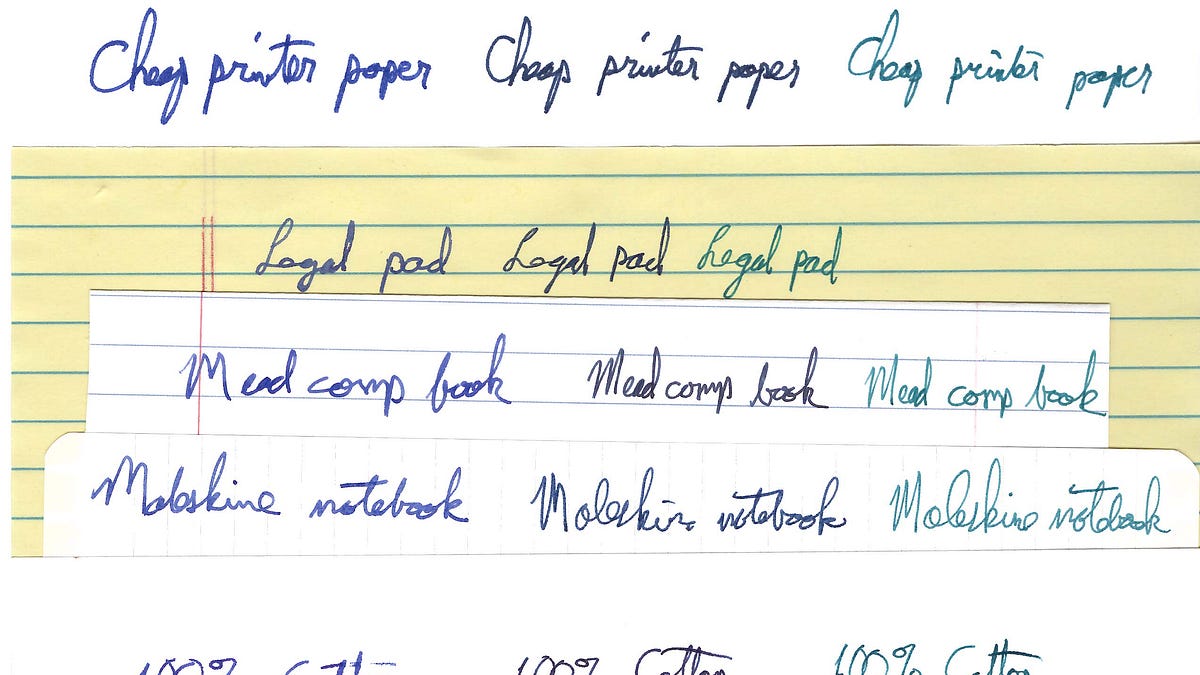 Cheap printer paper Cheap printer paper Cheap printer paper
Legal pad Legal pad Legal pad
Mead comp book Mead comp book Mead comp book
Moleskine notebook Moleskine notebook Moleskine notebook
100% Cotton 100% Cotton 100% Cotton